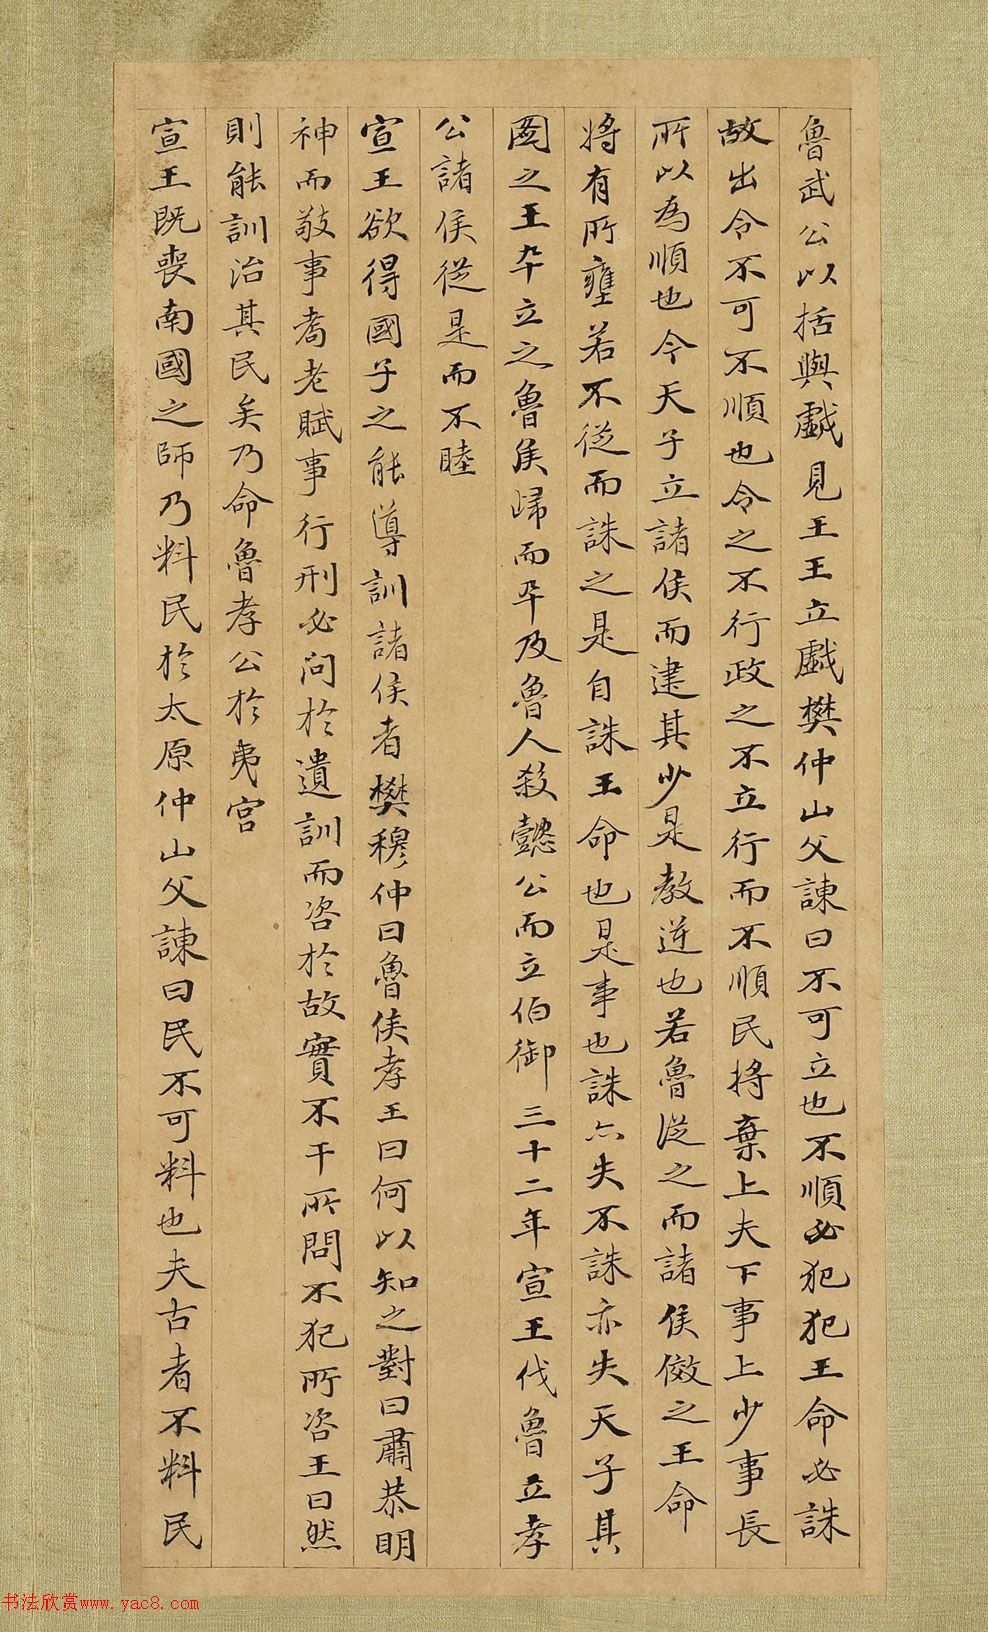 魯武公以括與戲見王王立戲樊仲山父諫曰不可立也不順必犯犯王命必誅
故出令不可不順也令之不行政之不立行而不順民將棄上夫下事上少事長
所以為順也今天子立諸侯而建其少是教逆也若魯從之而諸侯傚之王命
將有所壅若不從而誅之是自誅王命也是事也誅亦失不誅亦失天子其
圖之王卒立之魯侯歸而卒及魯人殺懿公而立伯御 三十二年宣王伐魯立孝
公諸侯從是而不睦
宣王欲得國子之能導訓諸侯者樊穆仲曰魯侯孝王曰何以知之對曰肅恭明
神而敬事耇老賦事行刑必问於遺訓而咨於故實不干所問不犯所咨王曰然
則能訓治其民矣乃命魯孝公於夷宮
宣王既喪南國之師乃料民於太原仲山父諫曰民不可料也夫古者不料民
书法欣赏www.yac8.com